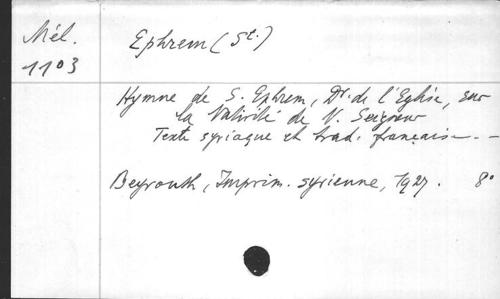 Mél.
1103
Ephrem (St.)
Hymne de S. Ephrem, Dr. de l'Eglise, sur
la Nativité de N. Seigneur
Texte syriaque et trad. française. —
Beyrouth, Imprim. syrienne, 1927. 8°